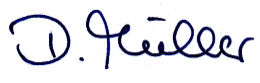 D. Müller